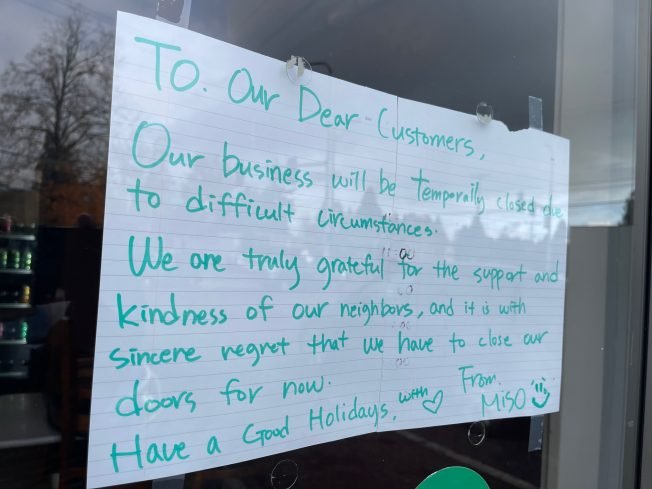 To. Our Dear Customers,
Our business will be temporaily closed due
to difficult circumstances.
We are truly grateful for the support and
kindness of our neighbors, and it is with
sincere regret that we have to close our
doors for now.
Have a Good Holidays. with ♡ From.
MISO